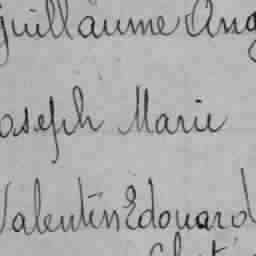 Guillaume Aug
Joseph Marie
Valentin Edouard